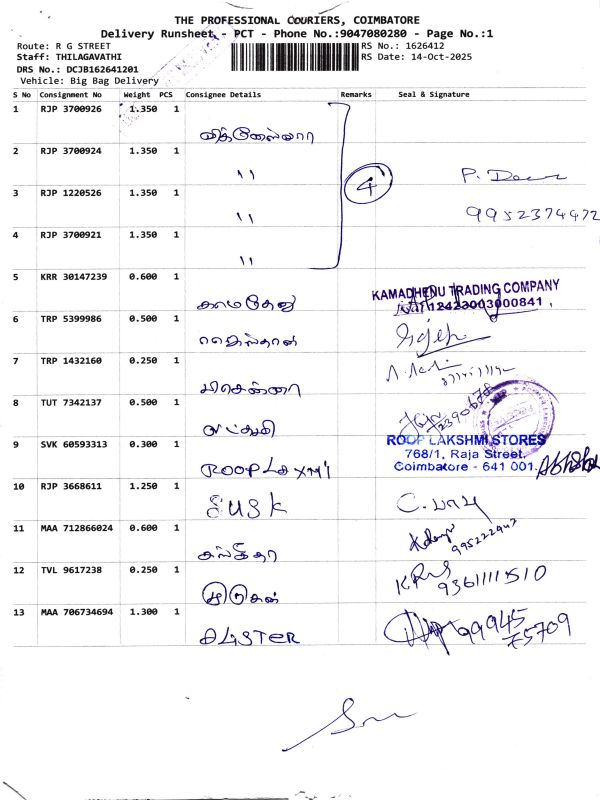 THE PROFESSIONAL COURIERS, COIMBATORE
Delivery Runsheet - PCT - Phone No.:9047080280 - Page No.:1
Route: R G STREET
RS No.: 1626412
Staff: THILAGAVATHI
RS Date: 14-Oct-2025
DRS No.: DCJB162641201
Vehicle: Big Bag Delivery
S No Consignment No Weight PCS Consignee Details Remarks Seal & Signature
1 RJP 3700926 1.350 1
2 RJP 3700924 1.350 1 ''
4
3 RJP 1220526 1.350 1 ''
9952374472
4 RJP 3700921 1.350 1 ''
5 KRR 30147239 0.600 1 காமதேனு
KAMADHENU TRADING COMPANY
12423003000841
6 TRP 5399986 0.500 1
7 TRP 1432160 0.250 1
8 TUT 7342137 0.500 1
9 SVK 60593313 0.300 1 ROOPLAXMI
ROOP LAKSHMI STORES
768/1, Raja Street,
Coimbatore - 641 001.
10 RJP 3668611 1.250 1 SUSK
C. பாபு
11 MAA 712866024 0.600 1
12 TVL 9617238 0.250 1 முருகன்
KRS 9361111510
13 MAA 706734694 1.300 1 ALISTER
99945
75709